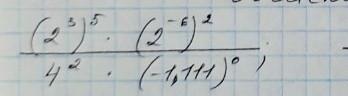 (2³)⁵ · (2⁻⁶)²
4² · (-1,111)⁰ ;